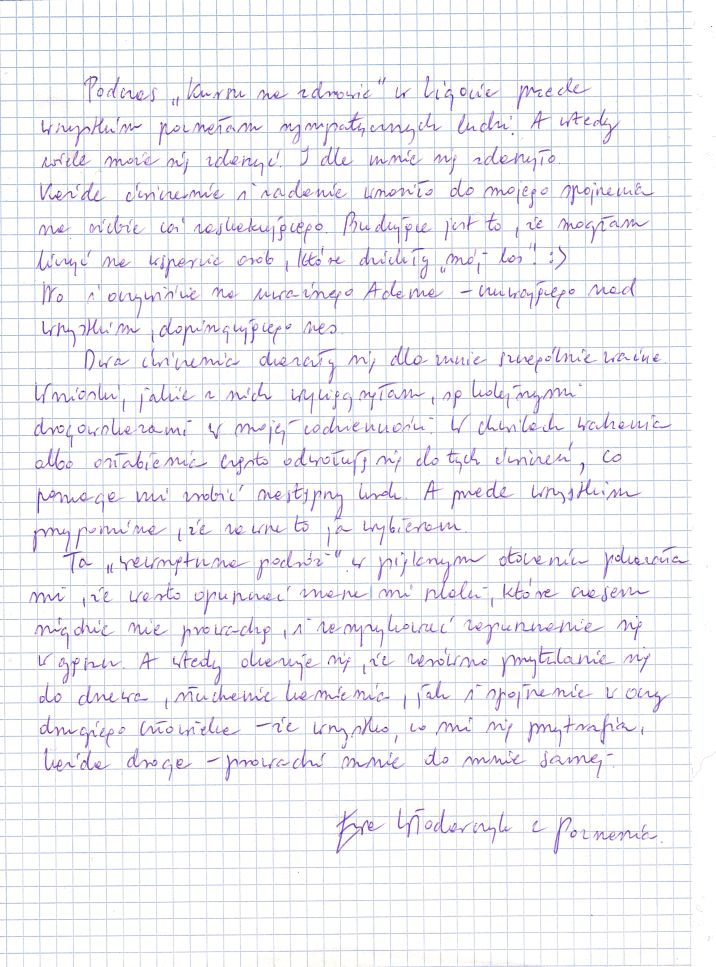 Podczas „Kursu na zdrowie" w Ligocie przede
wszystkim poznałam sympatycznych ludzi. A wtedy
wiele może się zdarzyć. I dla mnie się zdarzyło
Każde ćwiczenie i zadanie wnosiło do mojego spojrzenia
na siebie coś zaskakującego. Budujące jest to, że mogłam
liczyć na wsparcie osób, które dzieliły „mój los"! :)
No i oczywiście na uważnego Adama – czuwającego nad
wszystkim, dopingującego nas.
Dwa ćwiczenia okazały się dla mnie szczególnie ważne.
Wnioski, jakie z nich wyciągnęłam, są kolejnymi
drogowskazami w mojej codzienności. W chwilach wahania
albo osłabienia często odwołuję się do tych ćwiczeń, co
pomaga mi zrobić następny krok. A przede wszystkim
przypomina, że zawsze to ja wybieram.
Ta „wewnętrzna podróż" w pięknym otoczeniu pokazała
mi, że warto opuszczać znane mi szlaki, które czasem
nigdzie nie prowadzą, i zaryzykować zapuszczenie się
w gąszcz. A wtedy okazuje się, że zarówno przytulanie się
do drzewa, słuchanie kamienia, jak i spojrzenie w oczy
drugiego człowieka – że wszystko, co mi się przytrafia,
każda droga – prowadzi mnie do mnie samej.
Ewa Włodarczyk z Poznania.